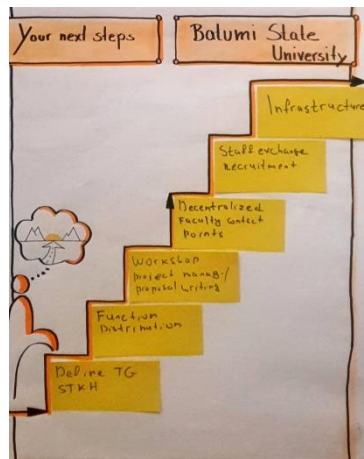 Your next steps
Batumi State
University
Infrastructure
Staff exchange
Recruitment
Decentralized
Faculty contact
Points
Workshop
project manag./
proposal writing
Function
Distribution
Define TG
STKH